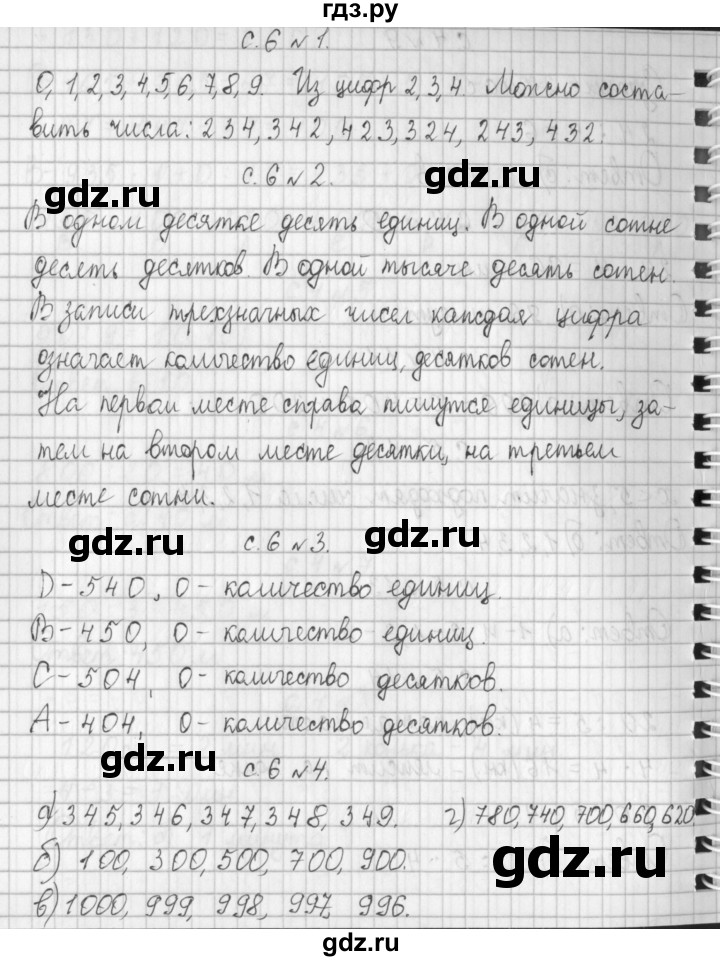 гдз.ру
с. 6 № 1.
0, 1, 2, 3, 4, 5, 6, 7, 8, 9. Из цифр 2, 3, 4. Можно соста-
вить числа: 234, 342, 423, 324, 243, 432.
с. 6 № 2.
gdz.ru
gdz.ru
В одном десятке десять единиц. В одной сотне
десять десятков. В одной тысяче десять сотен.
В записи трехзначных чисел каждая цифра
означает количество единиц, десятков сотен.
На первом месте справа пишутся единицы, за-
тем на втором месте десятки, на третьем
месте сотни.
gdz.ru
с. 6 № 3.
gdz.ru
D - 540, 0 - количество единиц.
В - 450, 0 - количество единиц.
С - 504, 0 - количество десятков.
А - 404, 0 - количество десятков.
gdz.ru
с. 6 № 4.
gdz.ru
а) 345, 346, 347, 348, 349. г) 780, 740, 700, 660, 620
б) 100, 300, 500, 700, 900.
gdz.ru
в) 1000, 999, 998, 997, 996.
gdz.ru